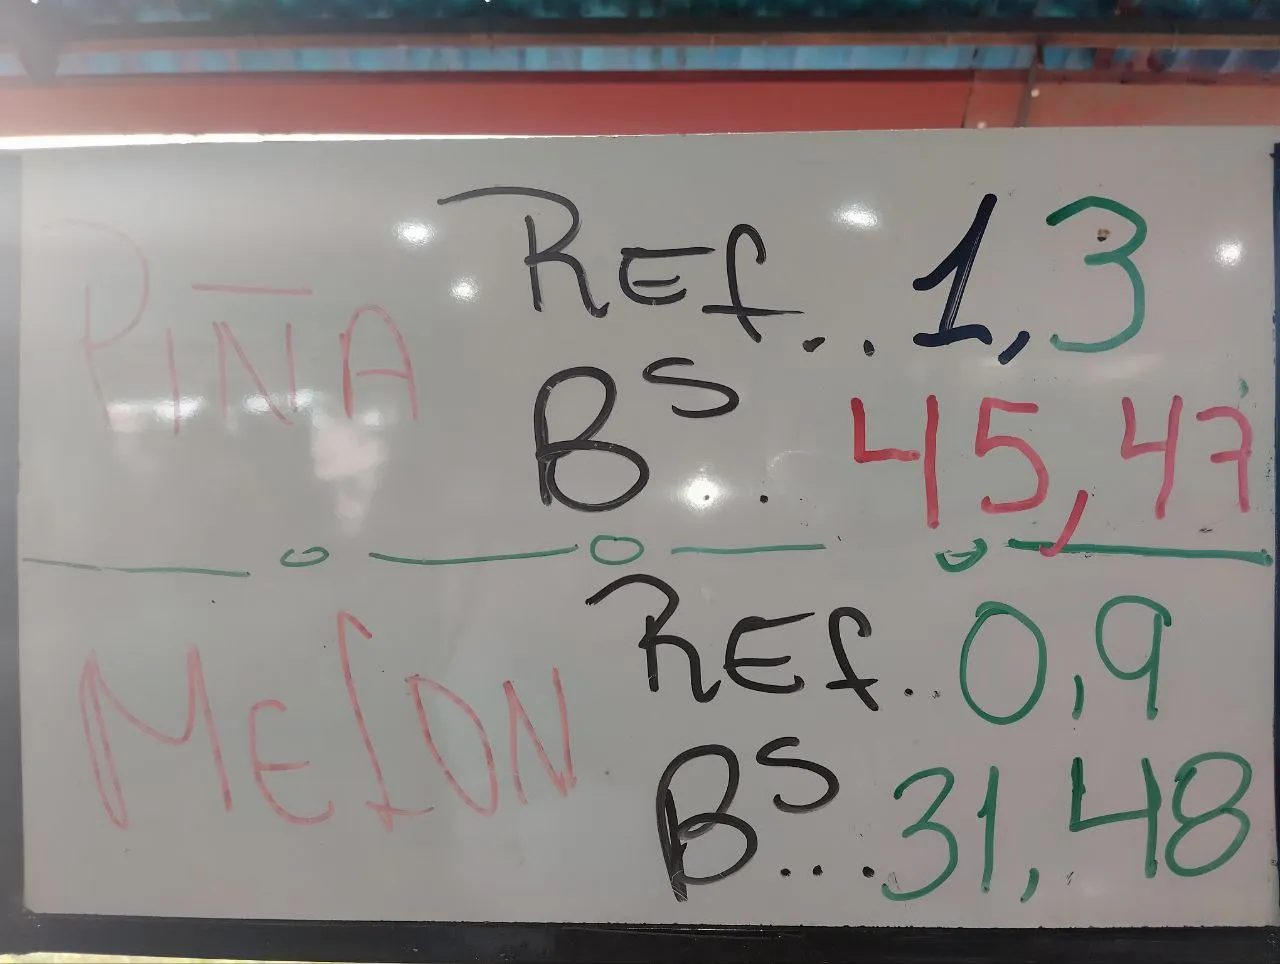 PIÑA REf.. 1,3
BS.. 45,47
MELON REf.. 0,9
BS... 31,48